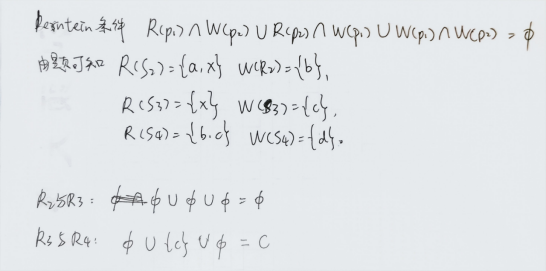 Bernstein条件 R(p₁)∩W(p₂)∪R(p₂)∩W(p₁)∪W(p₁)∩W(p₂)=ϕ
由题可知 R(S₂)={a,x} W(R₂)={b},
R(S3)={x} W(S3)={c},
R(S4)={b.c} W(S4)={d}。
R₂与R3: ϕ∪ϕ∪ϕ=ϕ
R3与R4: ϕ∪{c}∪ϕ=C